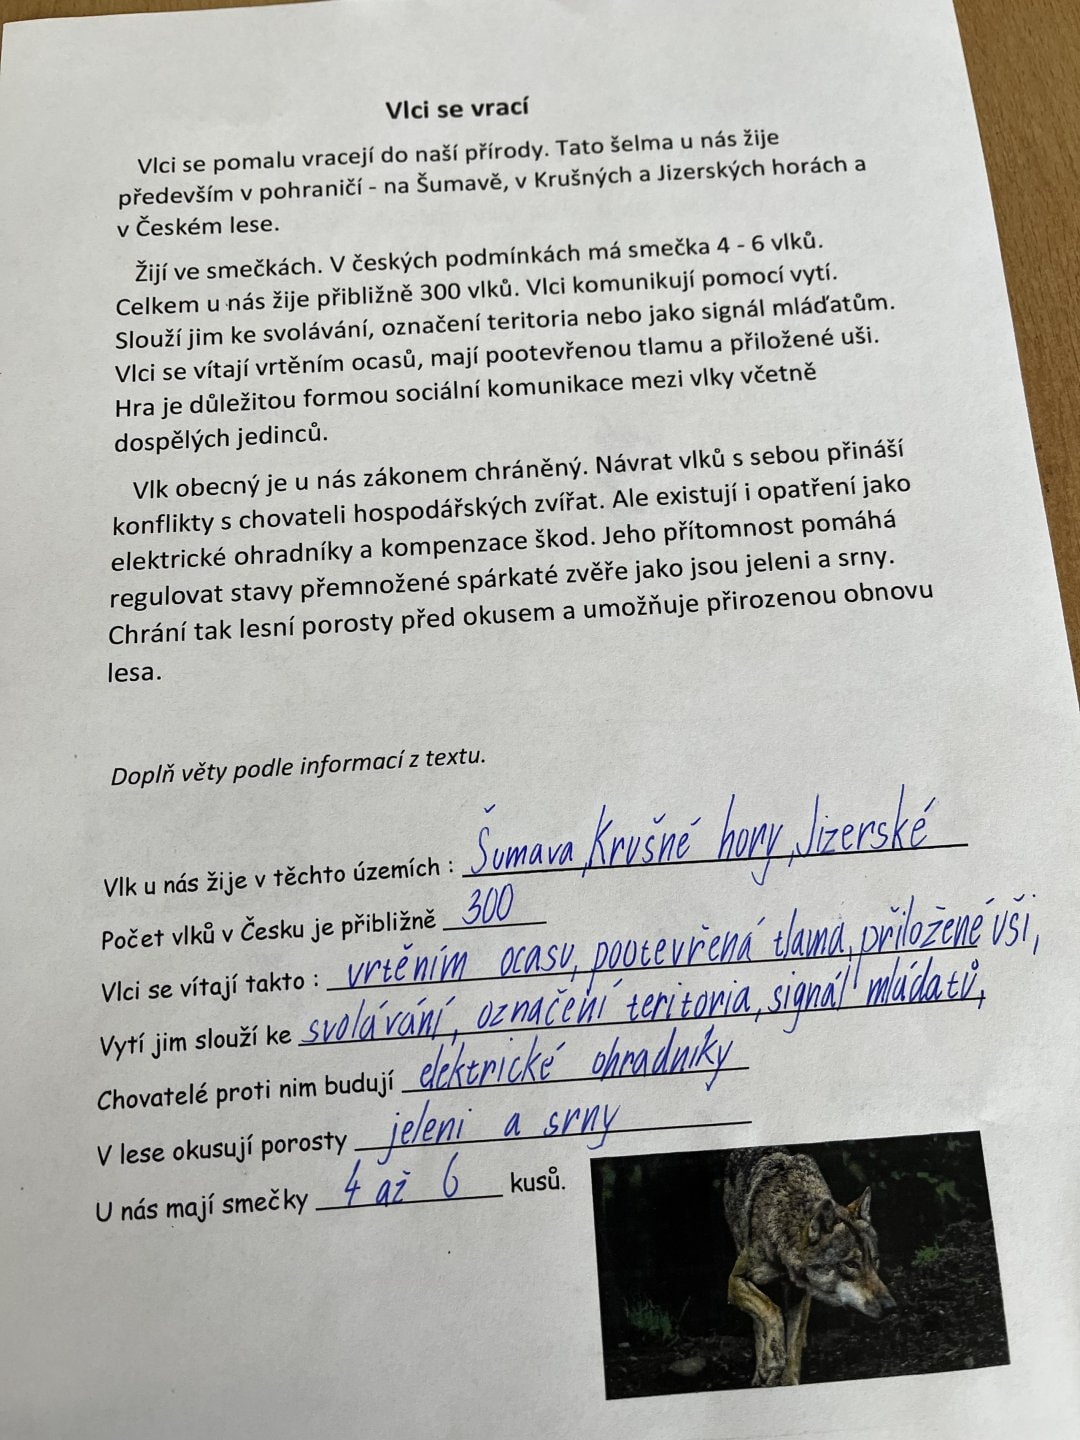 Vlci se vrací
Vlci se pomalu vracejí do naší přírody. Tato šelma u nás žije
především v pohraničí - na Šumavě, v Krušných a Jizerských horách a
v Českém lese.
Žijí ve smečkách. V českých podmínkách má smečka 4 - 6 vlků.
Celkem u nás žije přibližně 300 vlků. Vlci komunikují pomocí vytí.
Slouží jim ke svolávání, označení teritoria nebo jako signál mláďatům.
Vlci se vítají vrtěním ocasů, mají pootevřenou tlamu a přiložené uši.
Hra je důležitou formou sociální komunikace mezi vlky včetně
dospělých jedinců.
Vlk obecný je u nás zákonem chráněný. Návrat vlků s sebou přináší
konflikty s chovateli hospodářských zvířat. Ale existují i opatření jako
elektrické ohradníky a kompenzace škod. Jeho přítomnost pomáhá
regulovat stavy přemnožené spárkaté zvěře jako jsou jeleni a srny.
Chrání tak lesní porosty před okusem a umožňuje přirozenou obnovu
lesa.
Doplň věty podle informací z textu.
Vlk u nás žije v těchto územích : Šumava, Krušné hory, Jizerské
Počet vlků v Česku je přibližně 300
Vlci se vítají takto : vrtěním ocasu, pootevřená tlama, přiložené uši,
Vytí jim slouží ke svolávání, označení teritoria, signál mláďatů,
Chovatelé proti nim budují elektrické ohradníky
V lese okusují porosty jeleni a srny
U nás mají smečky 4 až 6 kusů.